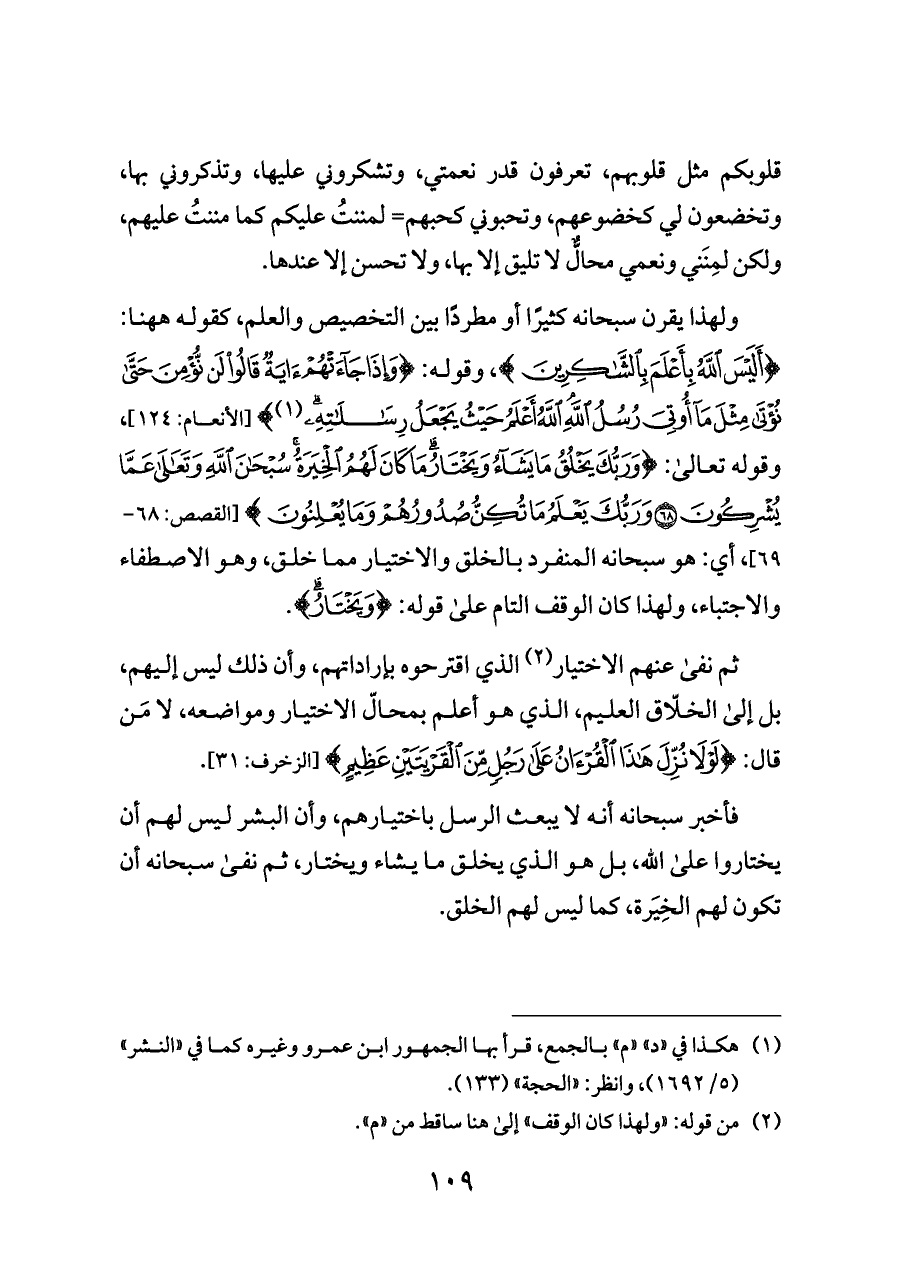 قلوبكم مثل قلوبهم، تعرفون قدر نعمتي، وتشكروني عليها، وتذكروني بها،
وتخضعون لي كخضوعهم، وتحبوني كحبهم= لمننتُ عليكم كما مننتُ عليهم،
ولكن لمِنَني ونعمي محالٌّ لا تليق إلا بها، ولا تحسن إلا عندها.
ولهذا يقرن سبحانه كثيرًا أو مطردًا بين التخصيص والعلم، كقوله ههنا:
﴿أَلَيْسَ ٱللَّهُ بِأَعْلَمَ بِٱلشَّٰكِرِينَ﴾، وقوله: ﴿وَإِذَا جَآءَتْهُمْ ءَايَةٌ قَالُوا۟ لَن نُّؤْمِنَ حَتَّىٰ
نُؤْتَىٰ مِثْلَ مَآ أُوتِىَ رُسُلُ ٱللَّهِ ٱللَّهُ أَعْلَمُ حَيْثُ يَجْعَلُ رِسَٰلَٰتِهِۦ(١)﴾ [الأنعام: ١٢٤]،
وقوله تعالىٰ: ﴿وَرَبُّكَ يَخْلُقُ مَا يَشَآءُ وَيَخْتَارُ ۗ مَا كَانَ لَهُمُ ٱلْخِيَرَةُ ۚ سُبْحَٰنَ ٱللَّهِ وَتَعَٰلَىٰ عَمَّا
يُشْرِكُونَ ٦٨ وَرَبُّكَ يَعْلَمُ مَا تُكِنُّ صُدُورُهُمْ وَمَا يُعْلِنُونَ﴾ [القصص: ٦٨-
٦٩]، أي: هو سبحانه المنفرد بالخلق والاختيار مما خلق، وهو الاصطفاء
والاجتباء، ولهذا كان الوقف التام علىٰ قوله: ﴿وَيَخْتَارُ ۗ﴾.
ثم نفىٰ عنهم الاختيار(٢) الذي اقترحوه بإراداتهم، وأن ذلك ليس إليهم،
بل إلىٰ الخلّاق العليم، الذي هو أعلم بمحالّ الاختيار ومواضعه، لا مَن
قال: ﴿لَوْلَا نُزِّلَ هَٰذَا ٱلْقُرْءَانُ عَلَىٰ رَجُلٍ مِّنَ ٱلْقَرْيَتَيْنِ عَظِيمٍ﴾ [الزخرف: ٣١].
فأخبر سبحانه أنه لا يبعث الرسل باختيارهم، وأن البشر ليس لهم أن
يختاروا علىٰ الله، بل هو الذي يخلق ما يشاء ويختار، ثم نفىٰ سبحانه أن
تكون لهم الخِيَرة، كما ليس لهم الخلق.
(١) هكذا في «د» «م» بالجمع، قرأ بها الجمهور ابن عمرو وغيره كما في «النشر»
(٥/ ١٦٩٢)، وانظر: «الحجة» (١٣٣).
(٢) من قوله: «ولهذا كان الوقف» إلىٰ هنا ساقط من «م».
١٠٩